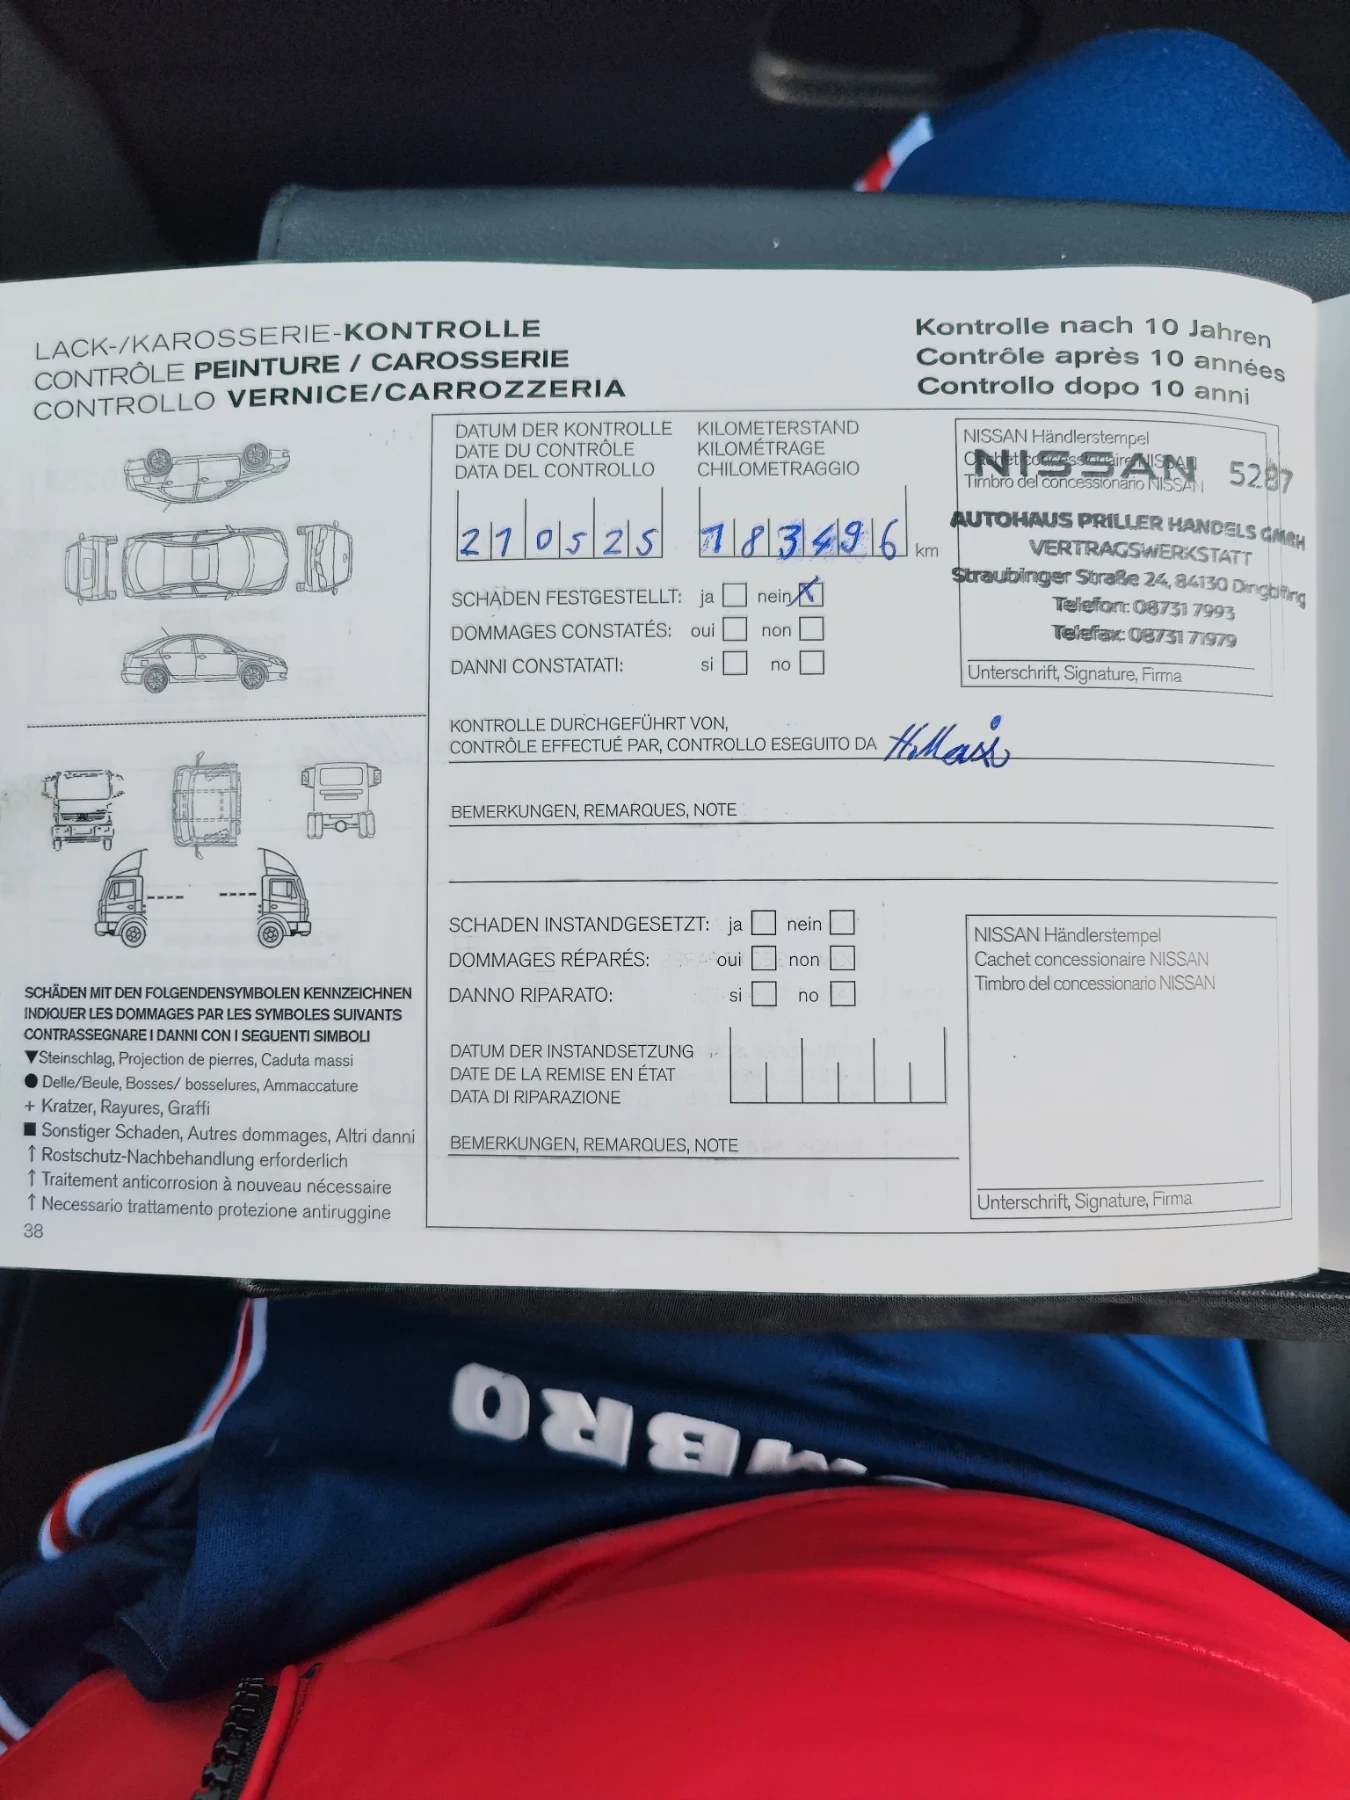 LACK-/KAROSSERIE-KONTROLLE
CONTRÔLE PEINTURE / CAROSSERIE
CONTROLLO VERNICE/CARROZZERIA
Kontrolle nach 10 Jahren
Contrôle après 10 années
Controllo dopo 10 anni
DATUM DER KONTROLLE
DATE DU CONTRÔLE
DATA DEL CONTROLLO
210525
KILOMETERSTAND
KILOMÉTRAGE
CHILOMETRAGGIO
183496 km
NISSAN Händlerstempel
Cachet concessionaire NISSAN
Timbro del concessionario NISSAN
NISSAN 5287
AUTOHAUS PRILLER HANDELS GMBH
VERTRAGSWERKSTATT
Straubinger Straße 24, 84130 Dingolfing
Telefon: 08731 7993
Telefax: 08731 71979
Unterschrift, Signature, Firma
SCHÄDEN FESTGESTELLT: ja nein X
DOMMAGES CONSTATÉS: oui non
DANNI CONSTATATI: si no
KONTROLLE DURCHGEFÜHRT VON,
CONTRÔLE EFFECTUÉ PAR, CONTROLLO ESEGUITO DA
BEMERKUNGEN, REMARQUES, NOTE
SCHADEN INSTANDGESETZT: ja nein
DOMMAGES RÉPARÉS: oui non
DANNO RIPARATO: si no
DATUM DER INSTANDSETZUNG
DATE DE LA REMISE EN ÉTAT
DATA DI RIPARAZIONE
BEMERKUNGEN, REMARQUES, NOTE
NISSAN Händlerstempel
Cachet concessionaire NISSAN
Timbro del concessionario NISSAN
Unterschrift, Signature, Firma
SCHÄDEN MIT DEN FOLGENDENSYMBOLEN KENNZEICHNEN
INDIQUER LES DOMMAGES PAR LES SYMBOLES SUIVANTS
CONTRASSEGNARE I DANNI CON I SEGUENTI SIMBOLI
▼Steinschlag, Projection de pierres, Caduta massi
● Delle/Beule, Bosses/ bosselures, Ammaccature
+ Kratzer, Rayures, Graffi
■ Sonstiger Schaden, Autres dommages, Altri danni
↑ Rostschutz-Nachbehandlung erforderlich
↑ Traitement anticorrosion à nouveau nécessaire
↑ Necessario trattamento protezione antiruggine
38